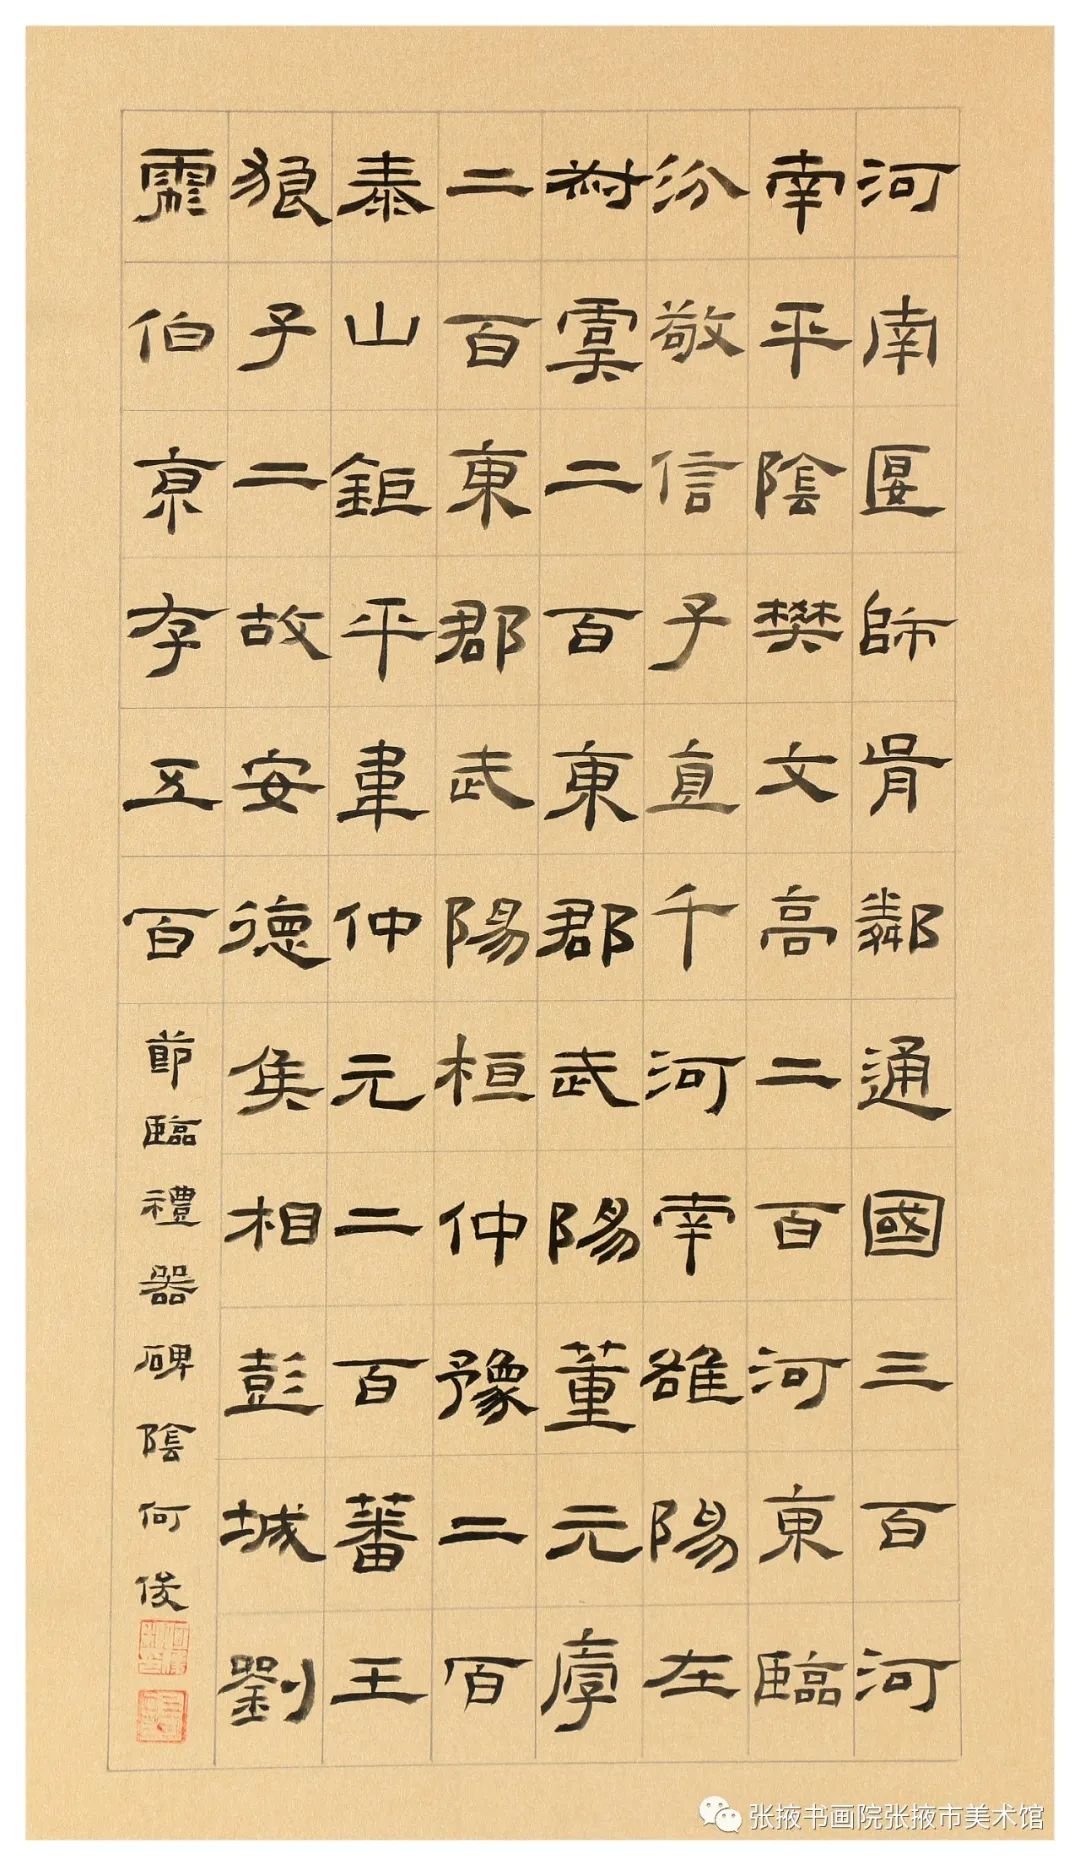 河南匽師胥鄰通國三百河
南平陰樊文高二百河東臨
汾敬信子直千河南雒陽左
叔虞二百東郡武陽董元厚
二百東郡武陽桓仲豫二百
泰山鉅平韋仲元二百蕃王
狼子二故安德侯相彭城劉
彪伯京存五百
節臨禮器碑陰何俊
张掖书画院张掖市美术馆